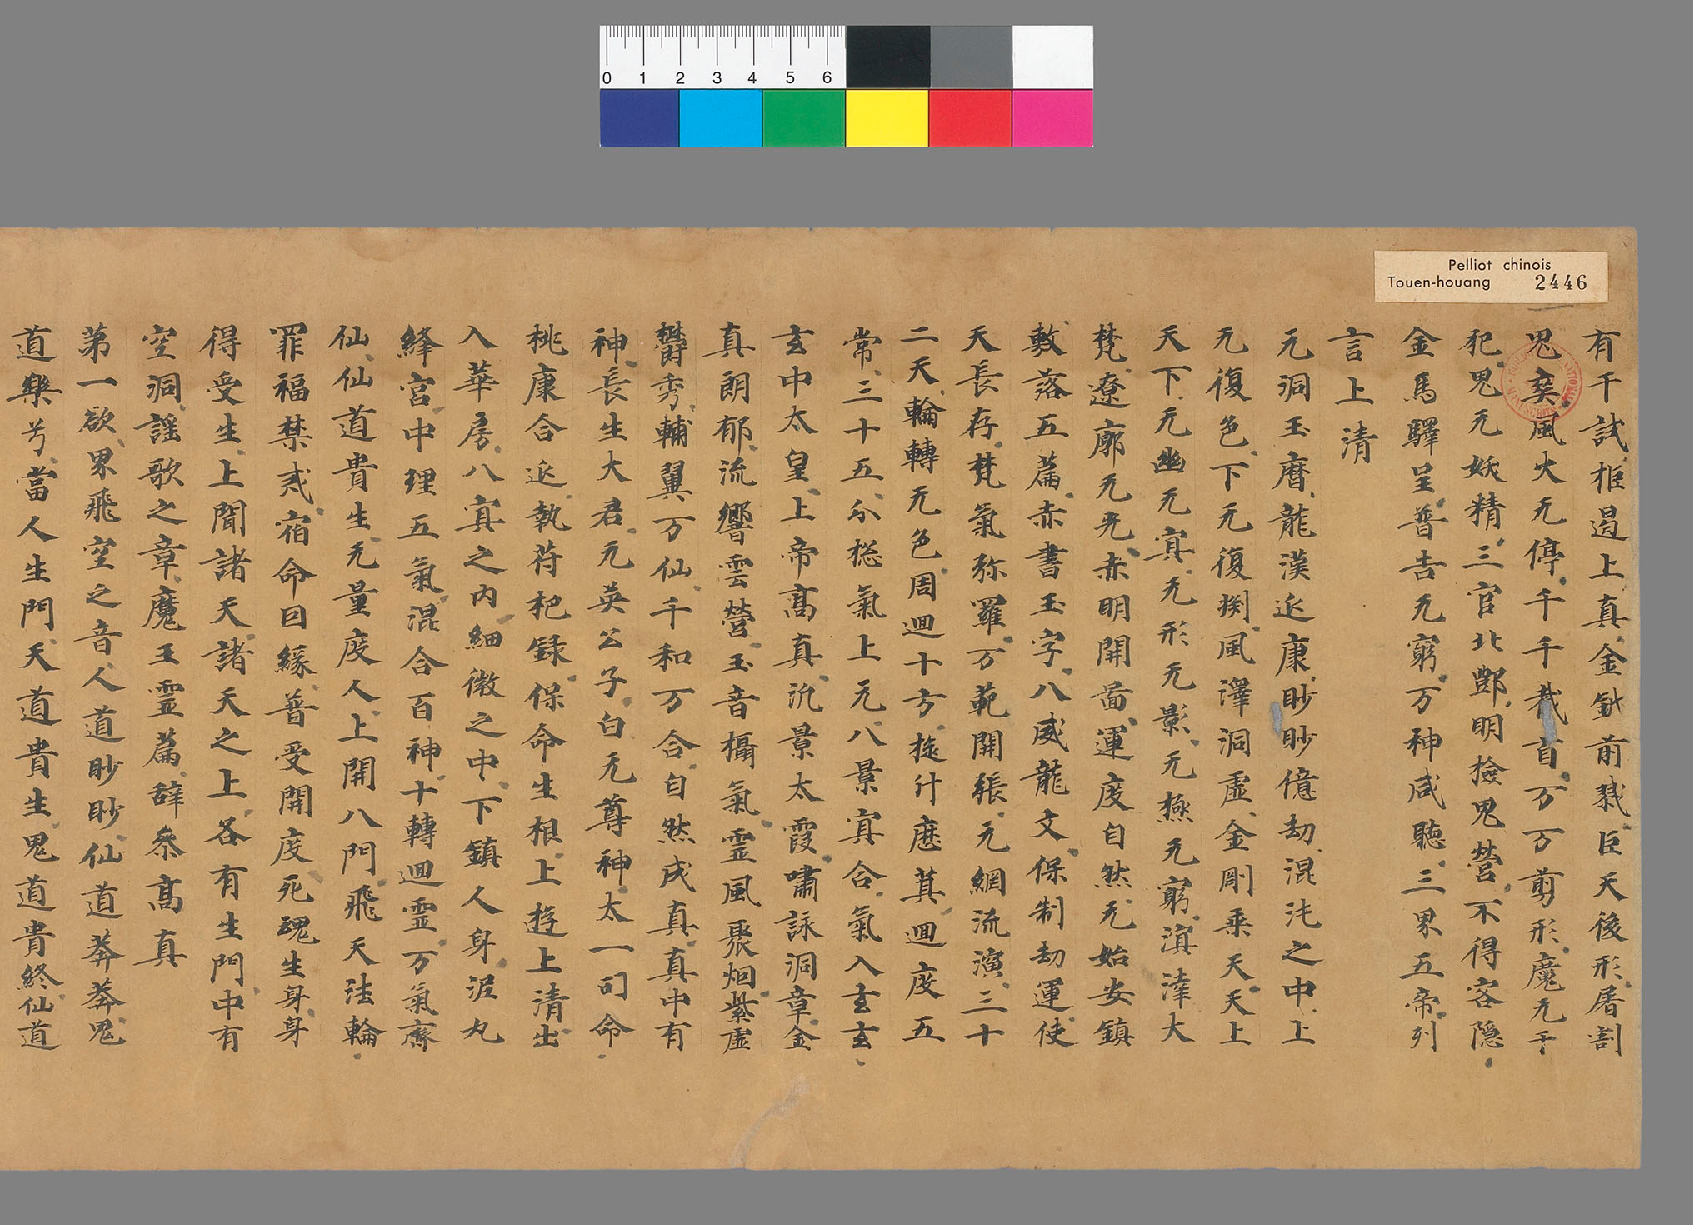 Pelliot chinois
Touen-houang 2446
0 1 2 3 4 5 6
有干試拒遏上真金鈇前戮巨天後形屠割
鬼爽風火无停千千截首万万剪形魔无干
犯鬼无妖精三官北酆明撿鬼營不得容隱
金馬驛呈普告无窮万神咸聽三界五帝列
言上清
元洞玉曆龍漢延康眇眇億劫混沌之中上
无復色下无復淵風澤洞虛金剛乘天天上
天下无幽无冥无形无影无極无窮溟涬大
梵遼廓无光赤明開啚運度自然元始安鎮
敷落五篇赤書玉字八威龍文保制劫運使
天長存梵氣弥羅万範開張元綱流演三十
二天輪轉无色周迴十方旋斗歷箕迴度五
常三十五分揔氣上元八景冥合氣入玄玄
玄中太皇上帝高真汎景太霞嘯詠洞章金
真朗郁流響雲營玉音攝氣靈風聚烟紫虛
欝秀輔翼万仙千和万合自然成真真中有
神長生大君无英公子白元尊神太一司命
桃康合延執符把録保命生根上遊上清出
入華房八冥之內細微之中下鎮人身泥丸
絳宮中理五氣混合百神十轉迴靈万氣齊
仙仙道貴生无量度人上開八門飛天法輪
罪福禁戒宿命因緣普受開度死魂生身身
得受生上聞諸天諸天之上各有生門中有
空洞謡歌之章魔王靈篇辭叅高真
第一欲界飛空之音人道眇眇仙道莽莽鬼
道樂兮當人生門天道貴生鬼道貴終仙道